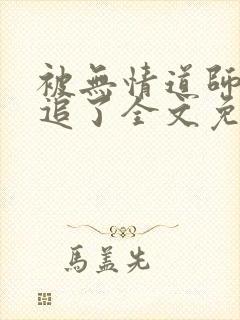 被無情道師
追了全文免
馬蓋先